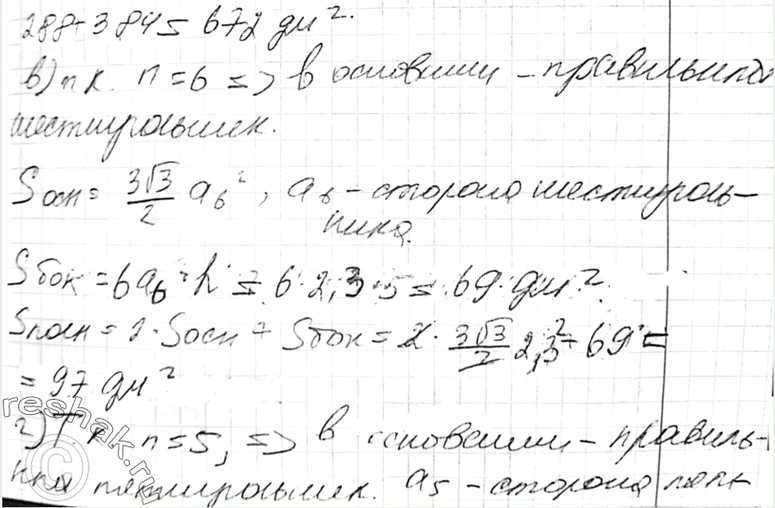 288+384= 672 дм².
в) т.к. n=6 => в основании – правильный
шестиугольник.
Sосн = 3√3/2 a₆², a₆ – сторона шестиуголь-
ника.
Sбок = 6a₆·h = 6·2,3·5 = 69 дм².
Sполн = 2·Sосн + Sбок = 2·3√3/2 2,3² + 69 =
= 97 дм²
г) т.к. n=5, => в основании – правиль-
ный пятиугольник. a₅ – сторона пят
reshak.ru